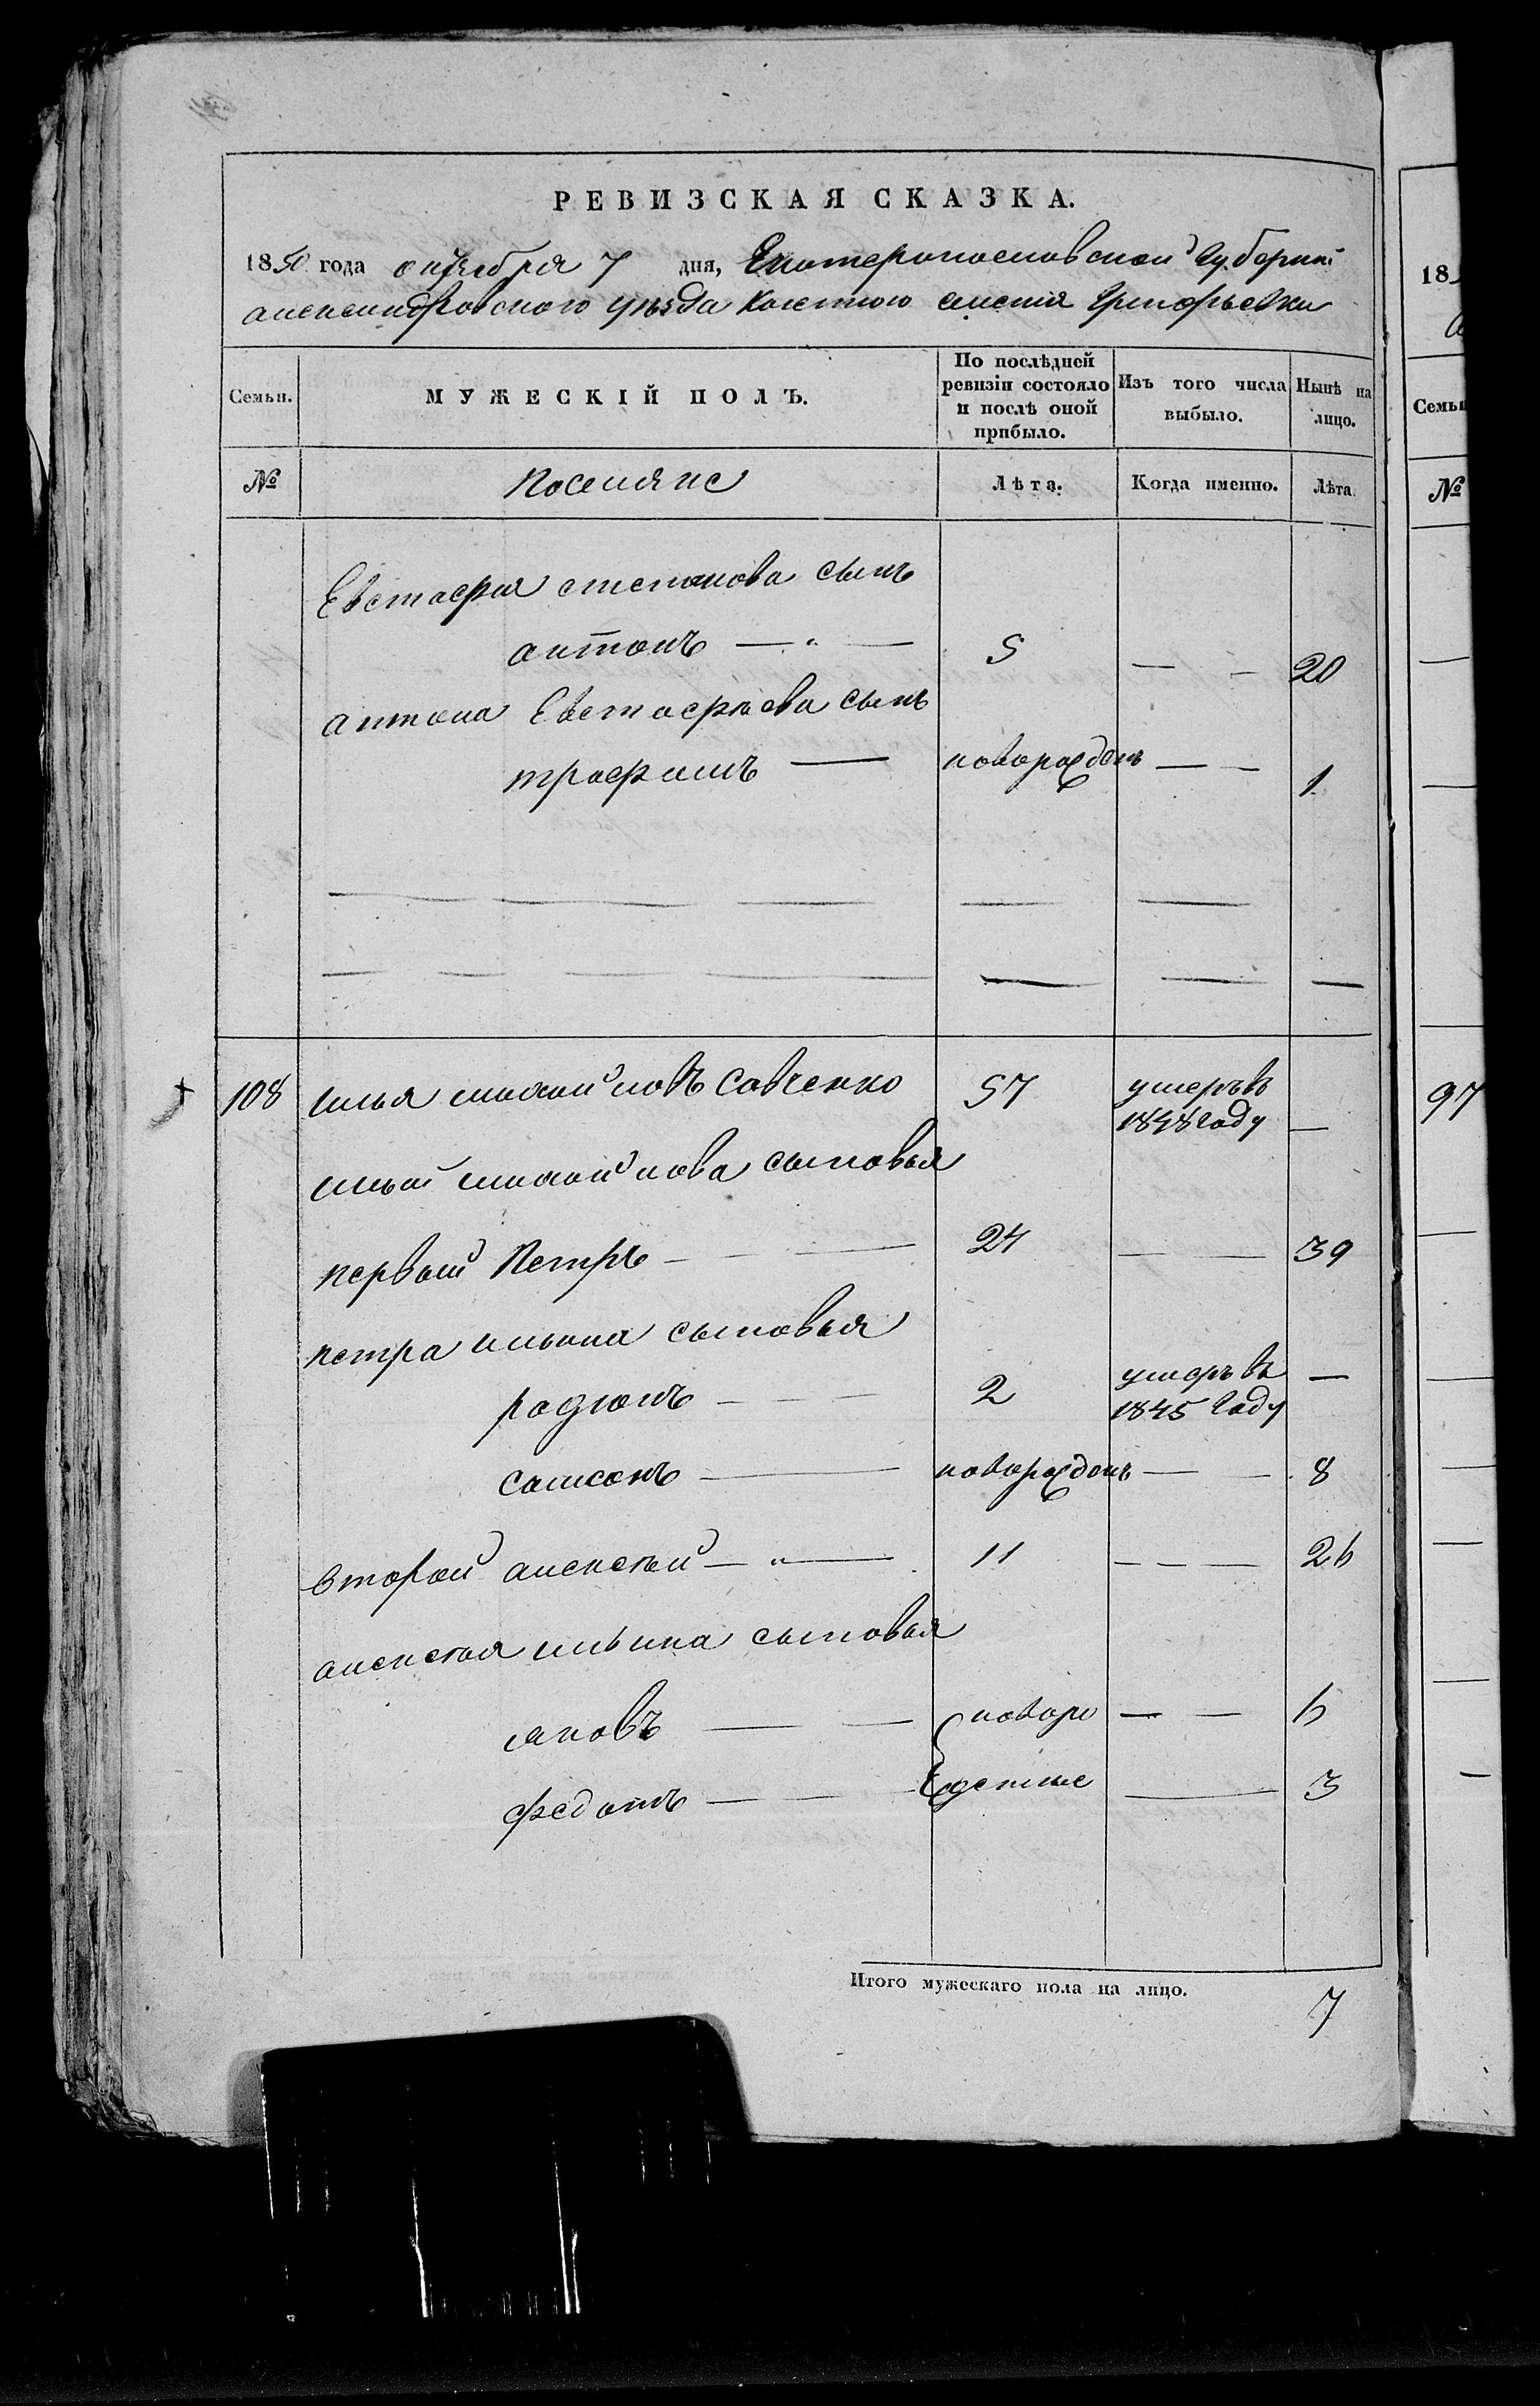 РЕВИЗСКАЯ СКАЗКА.
1850 года октября 7 дня, Екатеринославской Губернии
александровского уезда Григорьевки
Семьи. МУЖЕСКІЙ ПОЛЪ. По послѣдней ревизіи состояло и послѣ оной прибыло. Изъ того числа выбыло. Нынѣ на лицо.
№ Поселяне Лѣта. Когда именно. Лѣта.
Евстафия степанова сынъ
антонъ — „ — 5 — — 20
антона Евстафьева сынъ
трофимъ — новорожденъ — — 1
108 илья михайловъ Савченко 57 умеръ въ
1848 году —
ильи михайлова сыновья
первый Петръ — — 24 — — 39
петра ильина сыновья
родионъ — — 2 умеръ въ —
1845 году
самсонъ — новорожденъ — — 8
второй алексей — „ — 11 — — — 26
алексея ильина сыновья
яковъ — — новоро — — 6
федотъ — — жденные — 3
Итого мужескаго пола на лицо. 7
18
Семьи
№
97